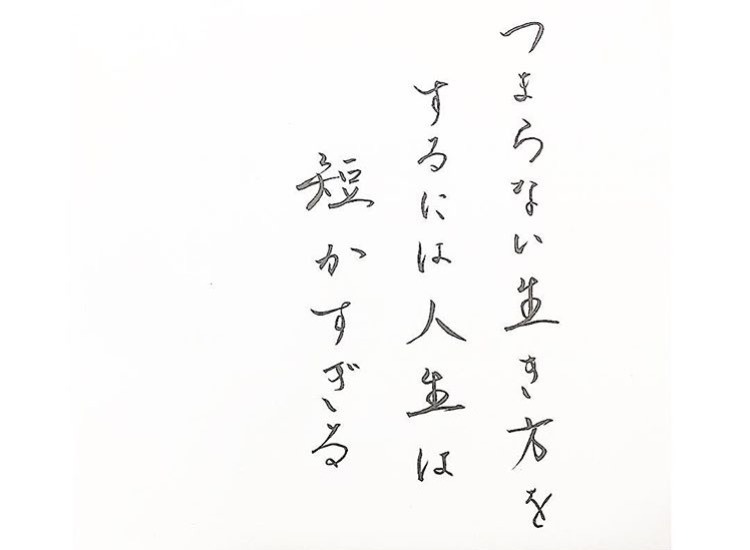 つまらない生き方を
するには人生は
短かすぎる